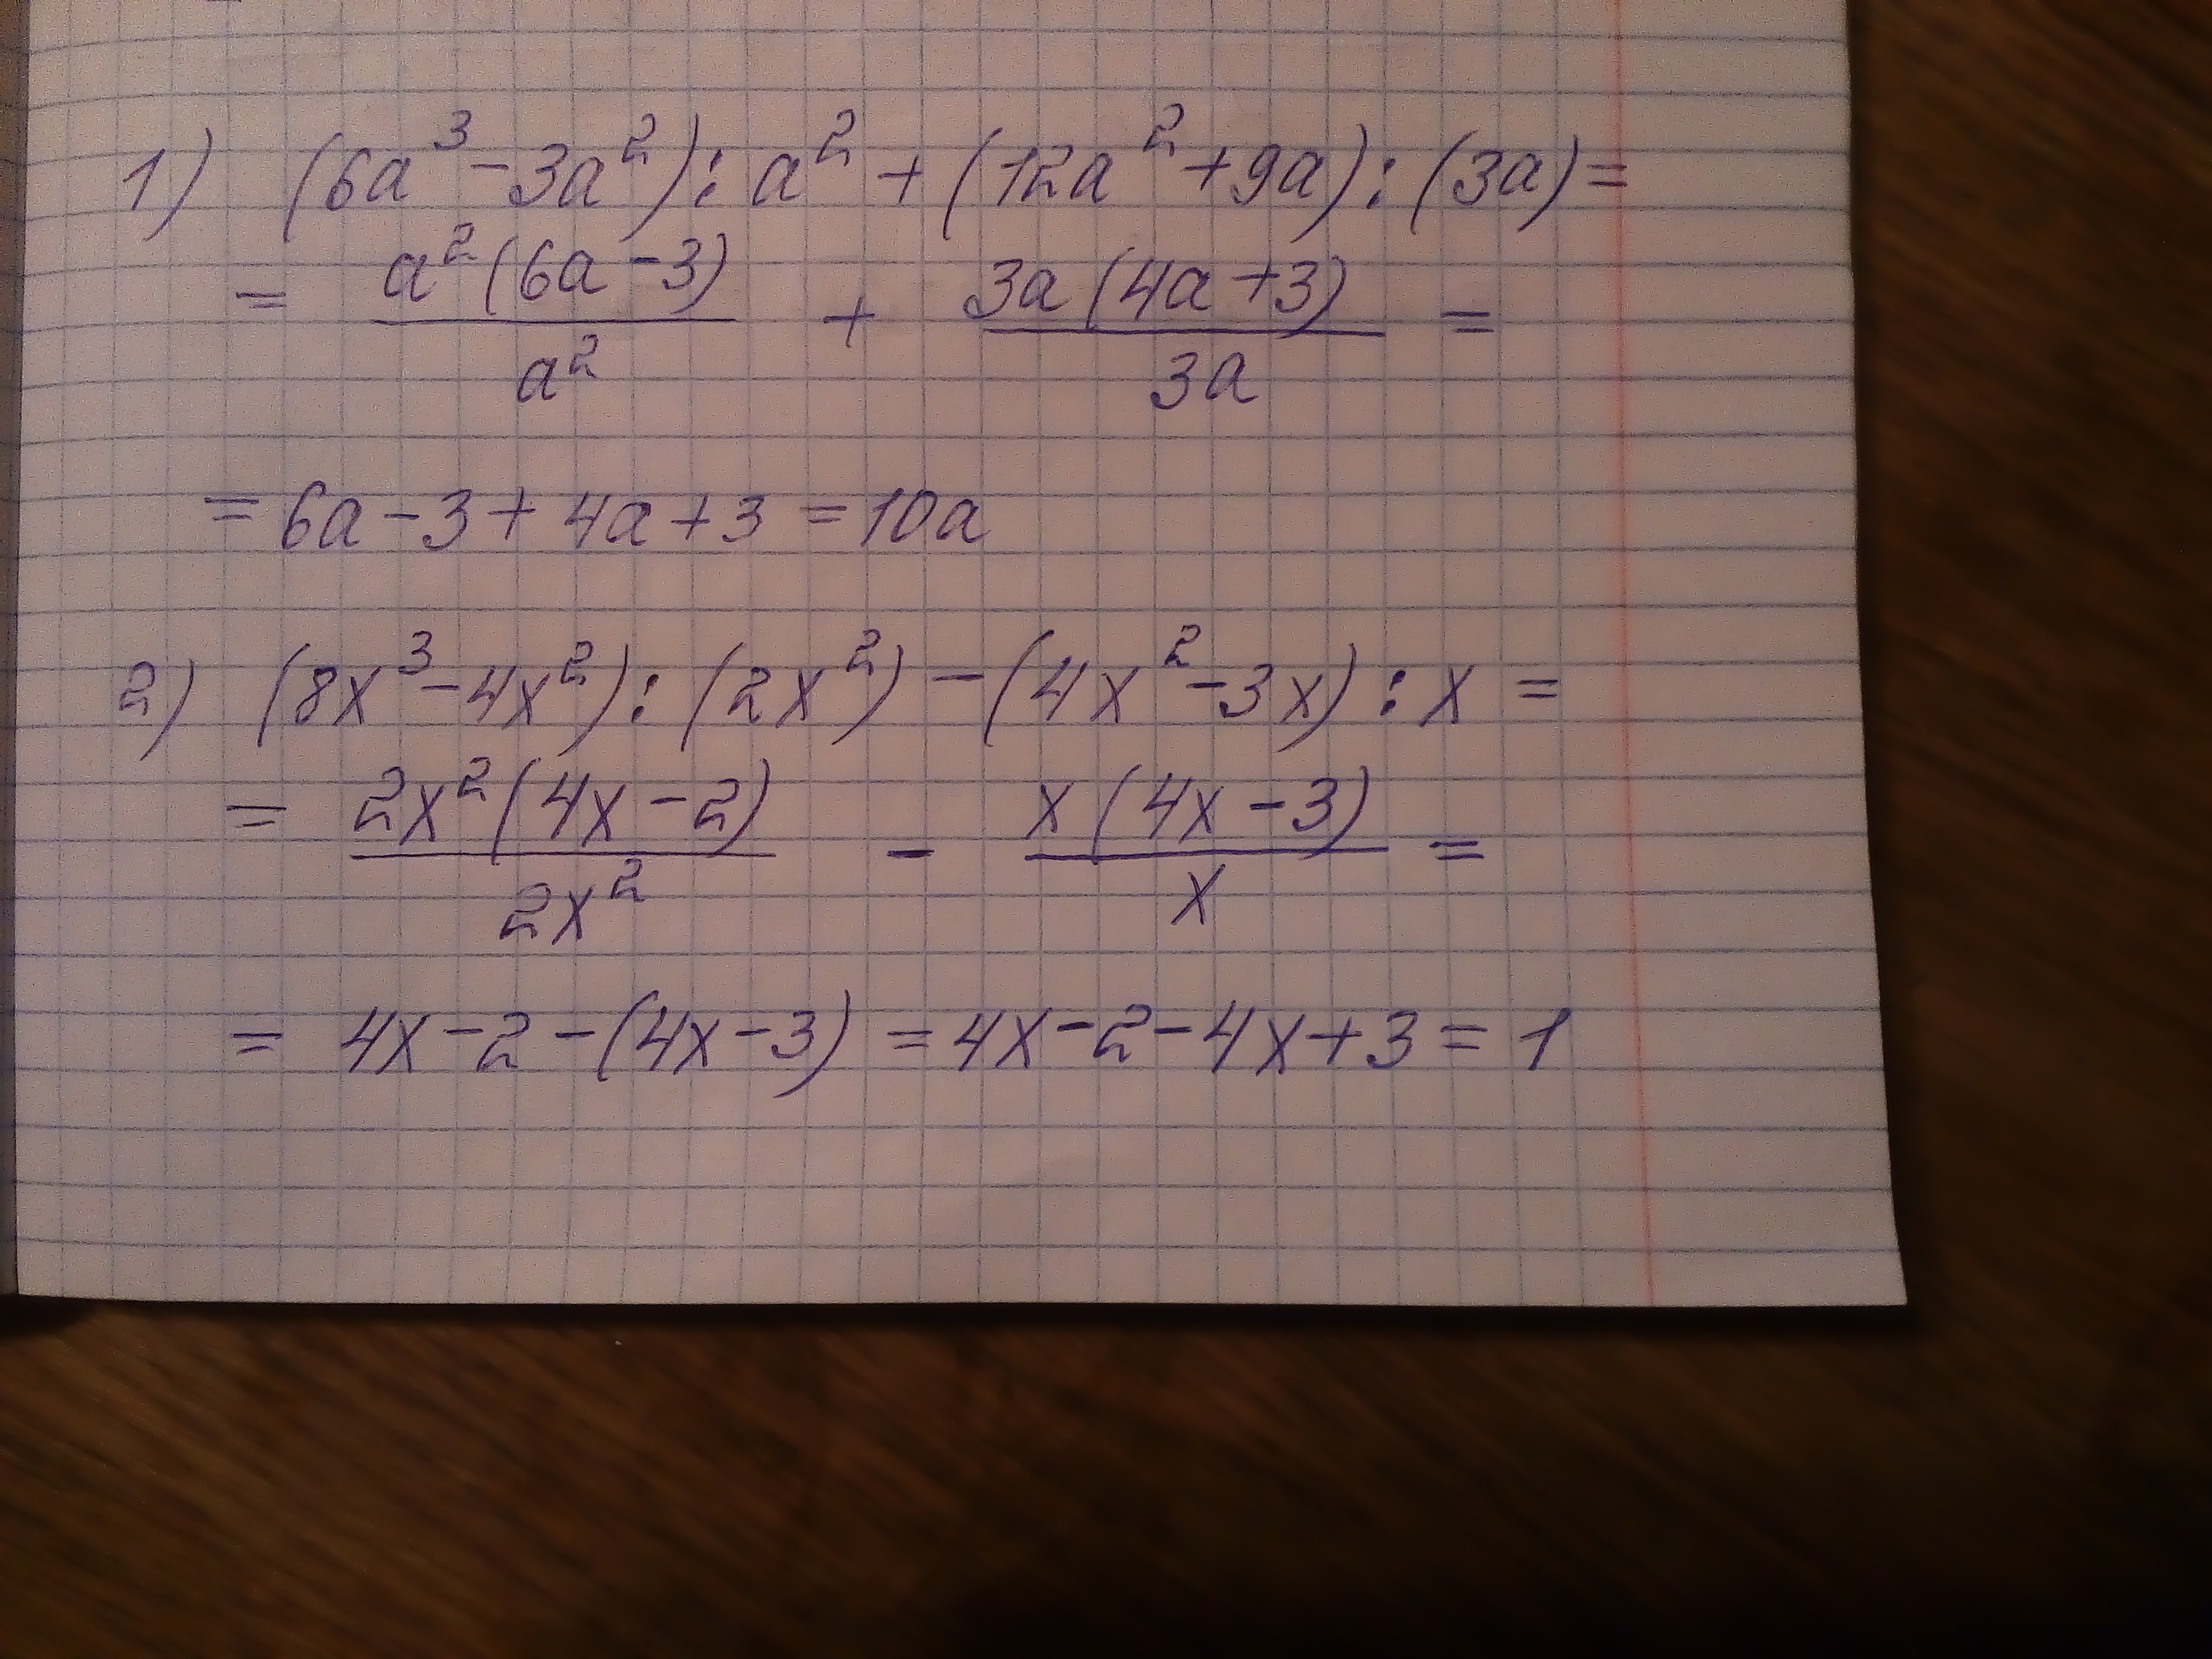 1) (6a³ - 3a²) : a² + (12a² + 9a) : (3a) =
= a²(6a - 3) / a² + 3a(4a + 3) / 3a =
= 6a - 3 + 4a + 3 = 10a
2) (8x³ - 4x²) : (2x²) - (4x² - 3x) : x =
= 2x²(4x - 2) / 2x² - x(4x - 3) / x =
= 4x - 2 - (4x - 3) = 4x - 2 - 4x + 3 = 1